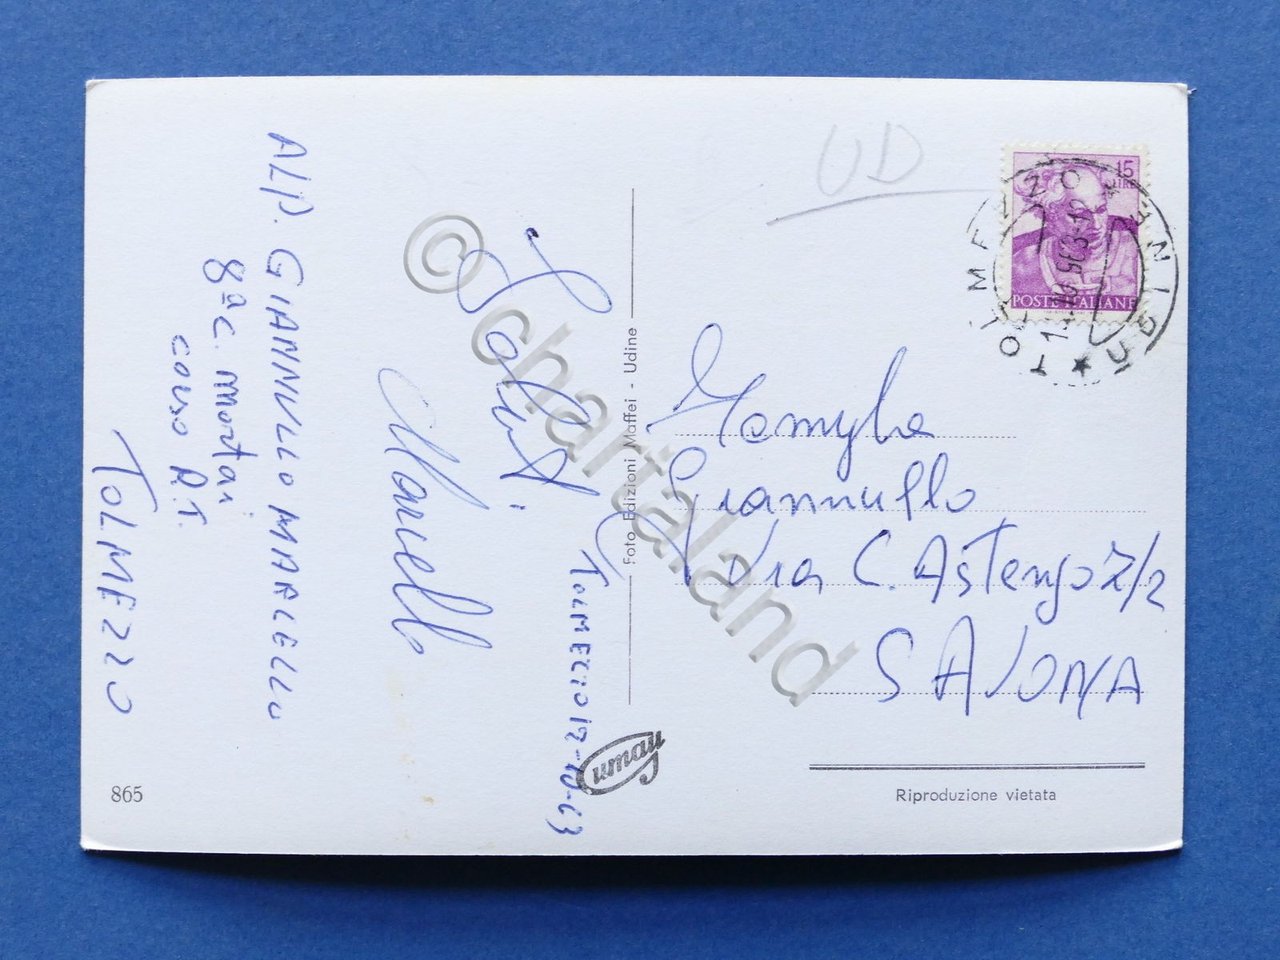 ALP. GIANNULLO MARCELLO
8ª C. mortai
corso R.T.
TOLMEZZO
Saluti
Marcello
TOLMEZZO 12-10-63
865
Foto Edizioni Maffei - Udine
umau
UD
15
LIRE
POSTE ITALIANE
TOLMEZZO
UDINE
Giannullo
Via C. Astengo 7/2
SAVONA
Riproduzione vietata
© chartaland